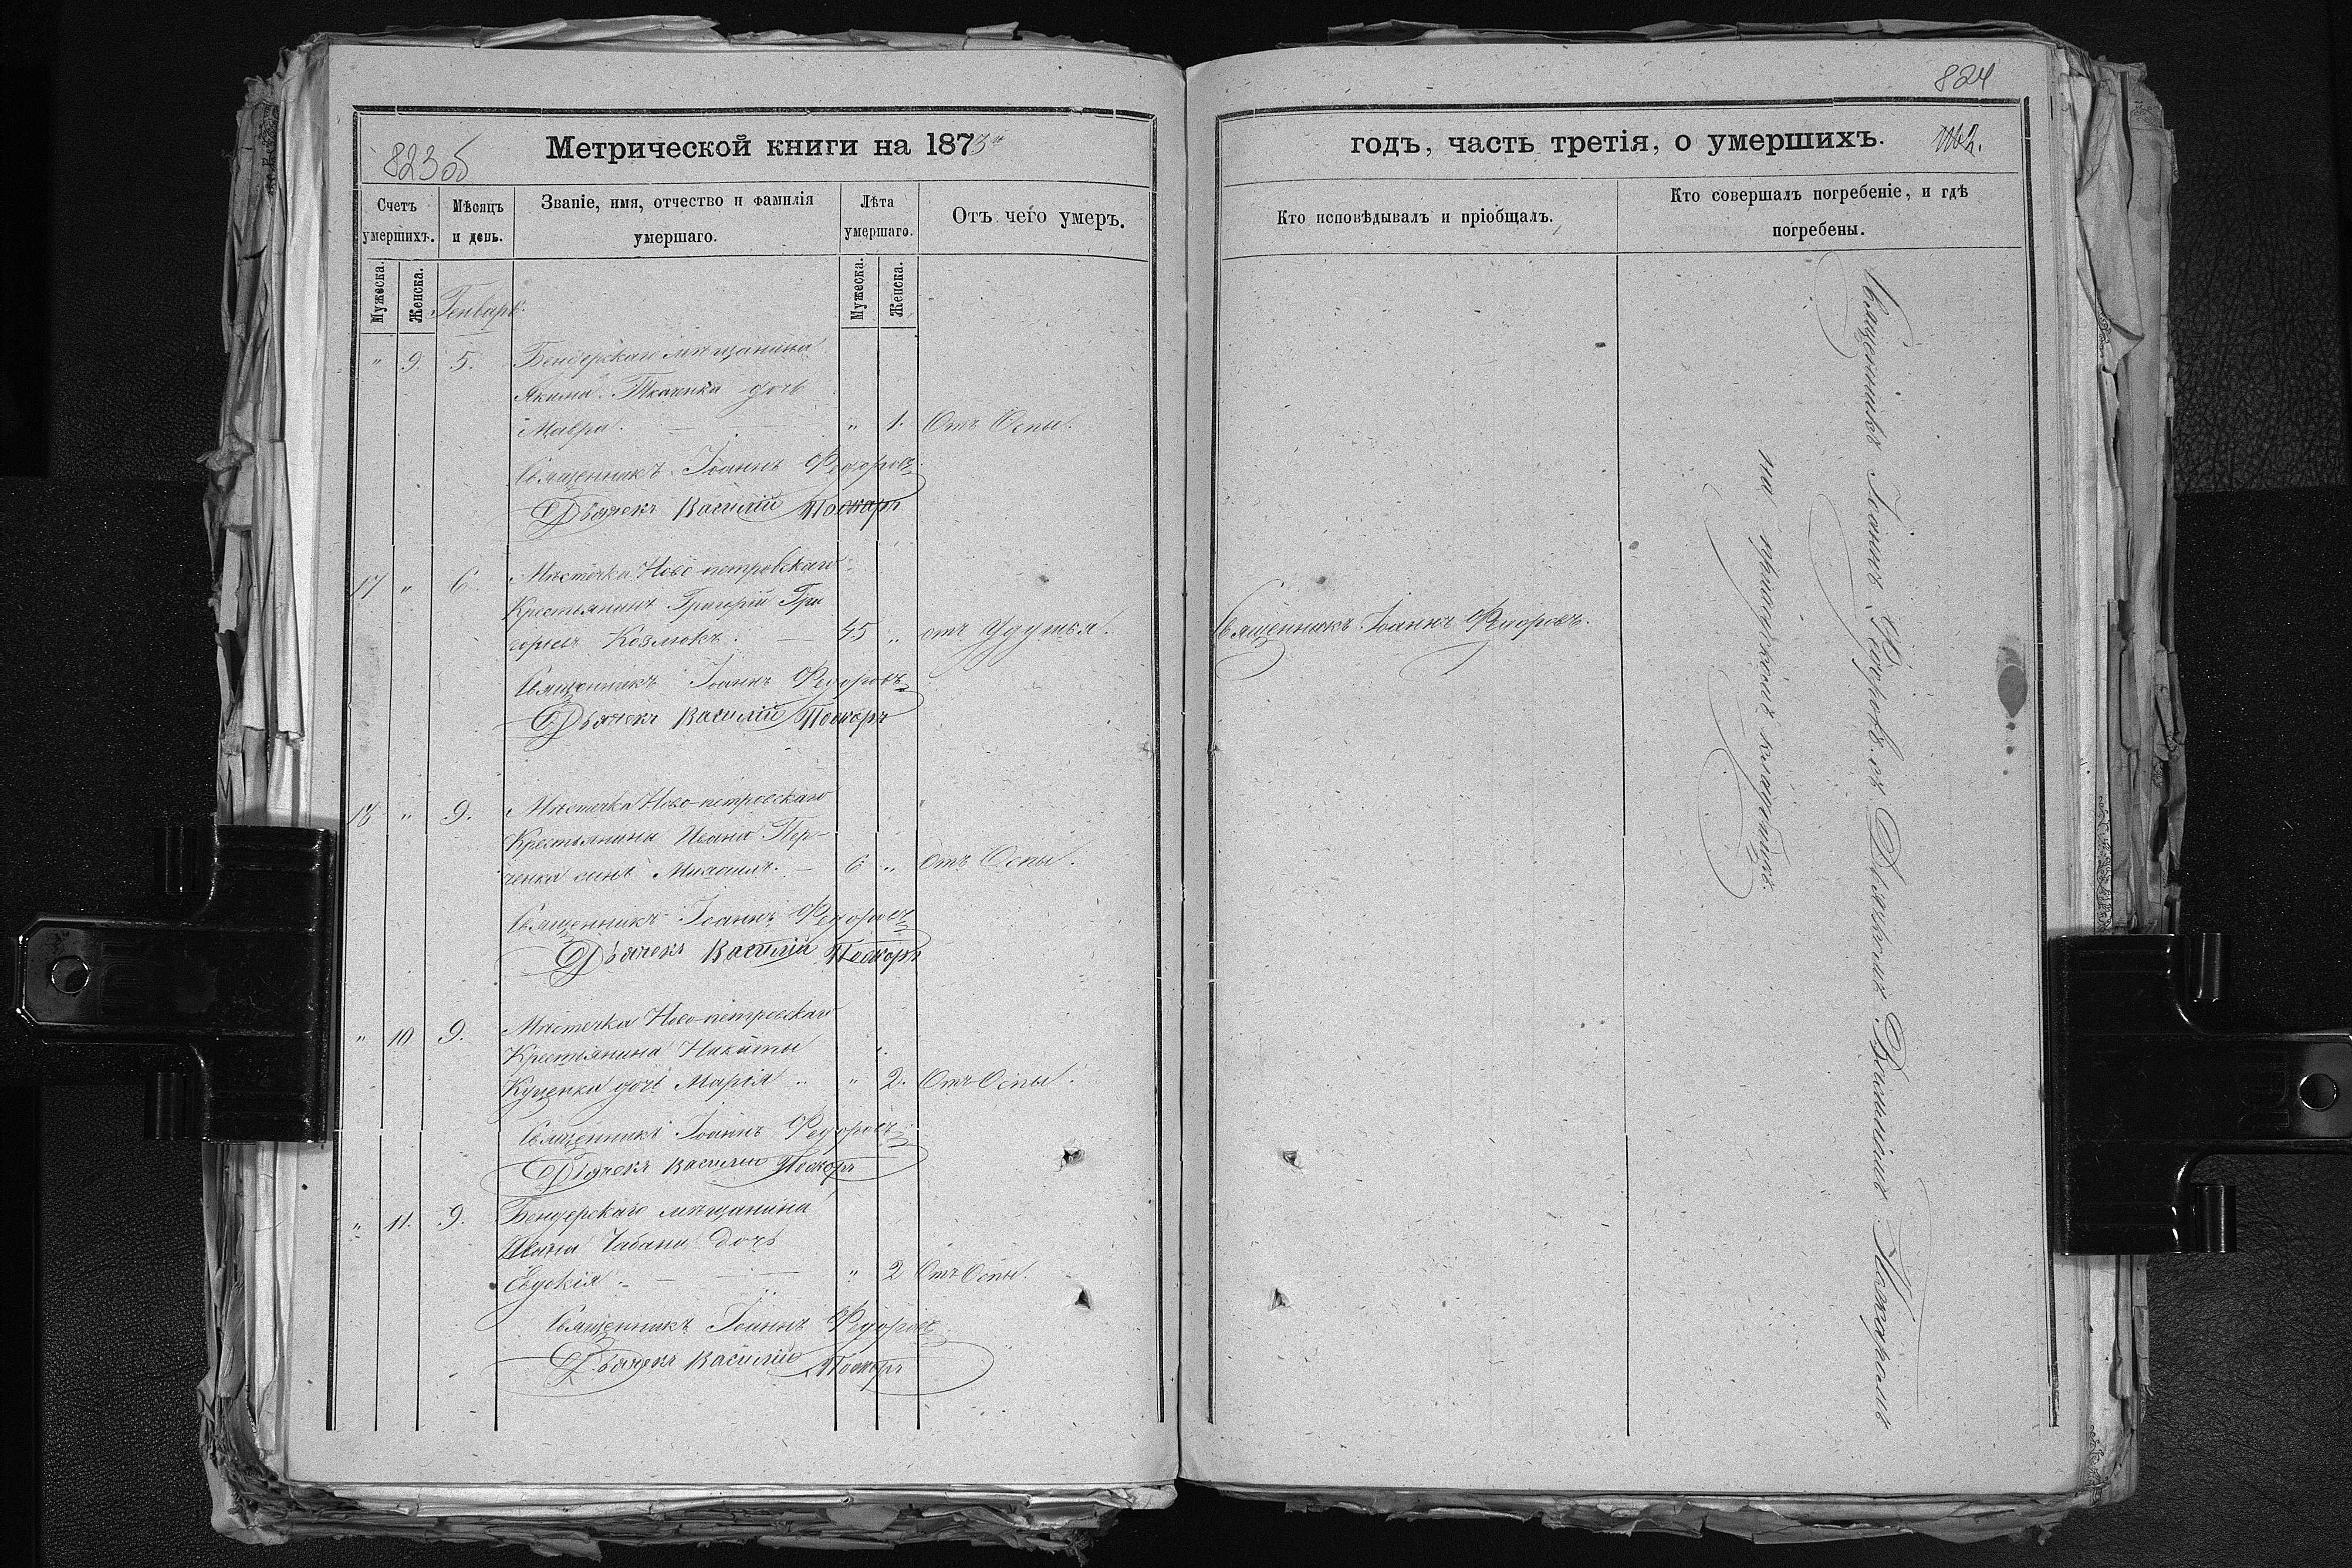 823об
Метрической книги на 1873й
Счетъ умершихъ.
Мѣсяцъ и день.
Званіе, имя, отчество и фамилія умершаго.
Лѣта умершаго.
Отъ чего умеръ.
Мужеска.
Женска.
Мужеска.
Женска.
Генварь.
" 9. 5. Бендерскаго мѣщанина
Якима Ткаченка дочь
Мавра. — — " 1. Отъ Оспы.
Священникъ Іоаннъ Федоровъ
Дьячекъ Василій
17 " 6. Мѣстечка Ново-петровскаго
Крестьянинъ Григорій Гри
горьевъ Козлюкъ. — 45 " отъ удушья.
Священникъ Іоаннъ Федоровъ
Дьячекъ Василій
18 " 9. Мѣстечка Ново-петровскаго
Крестьянина Ивана Пер-
ченка сынъ Михаилъ. — 6 " Отъ Оспы.
Священникъ Іоаннъ Федоровъ
Дьячекъ Василій
" 10 9. Мѣстечка Ново-петровскаго
Крестьянина Никиты
Куценка дочь Марія " 2. Отъ Оспы.
Священникъ Іоаннъ Федоровъ
Дьячекъ Василій
" 11. 9. Бендерскаго мѣщанина
Ивана Чабана дочь
Евдокія. — — " 2 Отъ Оспы.
Священникъ Іоаннъ Федоровъ
Дьячекъ Василій
824
годъ, часть третія, о умершихъ.
Кто исповѣдывалъ и пріобщалъ.
Кто совершалъ погребеніе, и гдѣ погребены.
Священникъ Іоаннъ Федоровъ.
Священникъ Іоаннъ Федоровъ съ Дьячкомъ Василіемъ
на приходскомъ кладбищѣ.